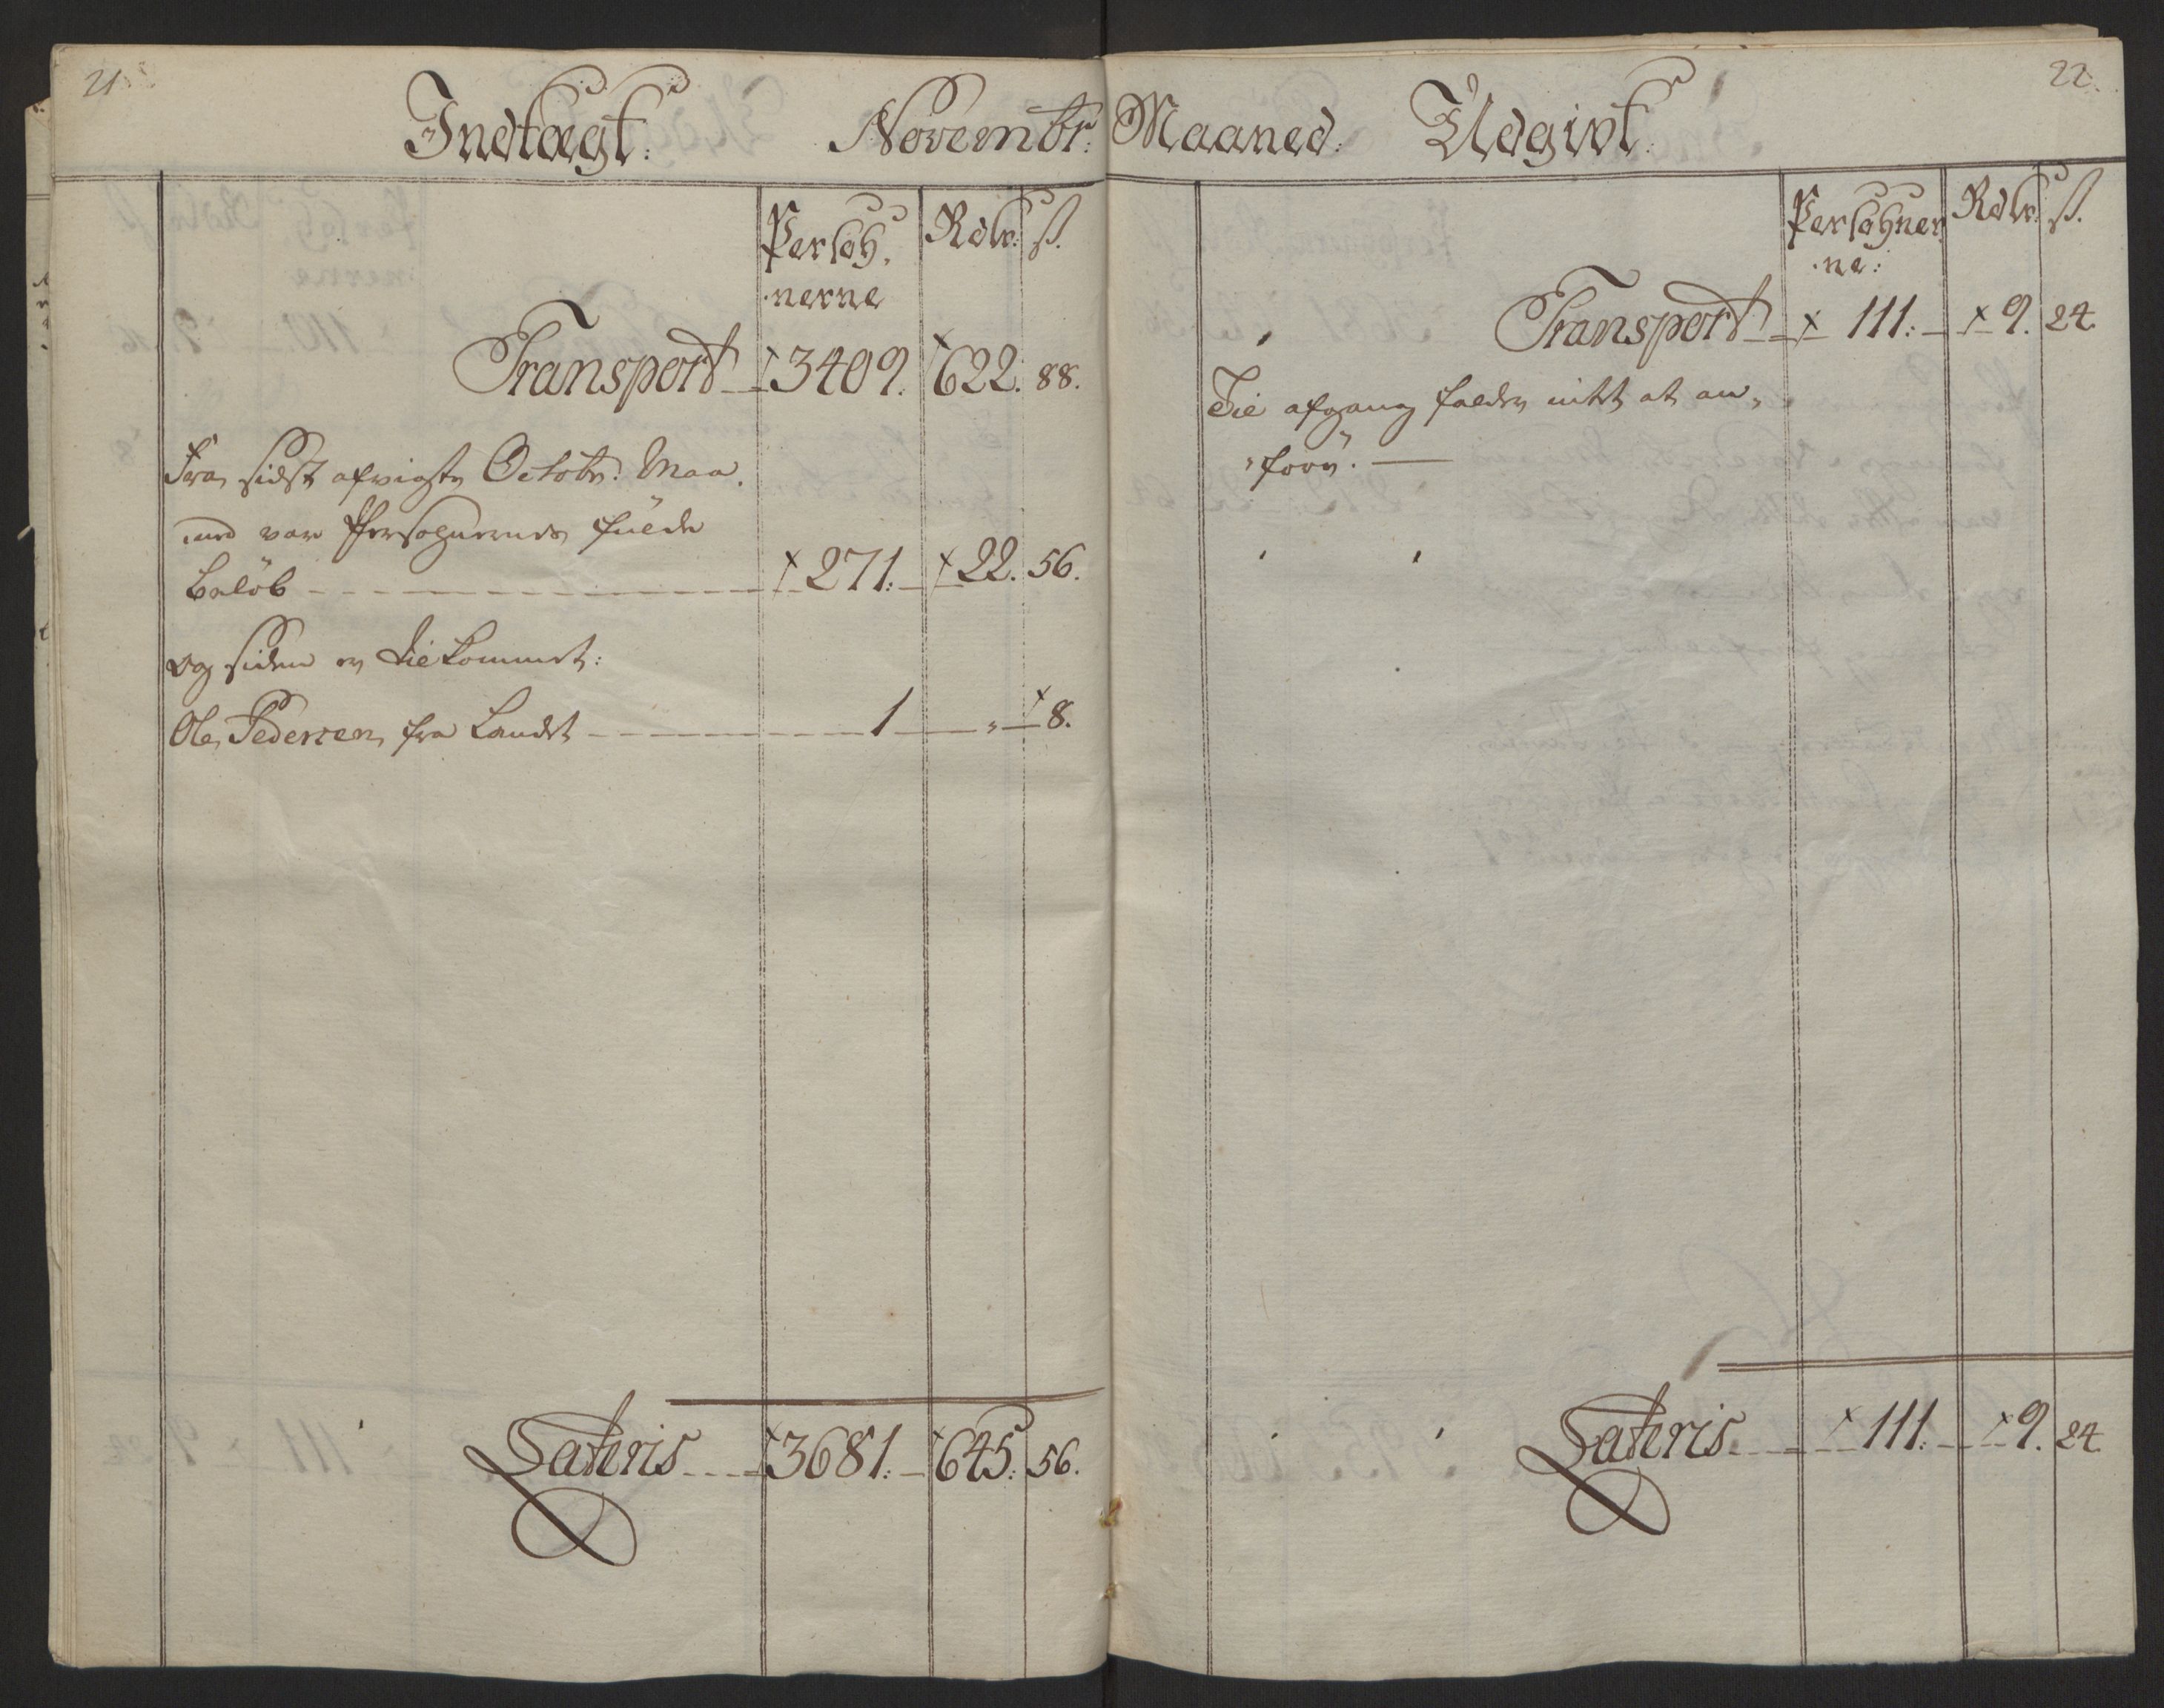 21.
Indtægt. Novembr:
Persoh,
nerne
Rdlr: ß.
Transport 3409. 622. 88.
Fra sidst afvigte Octobr: Maa,
ned var Persohnernes fulde
beløb 271. 22. 56.
og siden er tilkommet:
Ole Pedersen fra Landet 1 " 8.
Lateris 3681. 645. 56.
22.
Maaned. Udgivt.
Persohner,
ne:
Rdlr: ß.
Transport 111. 9. 24.
Til afgang falder intet at an,
føre.
Lateris 111. 9. 24.